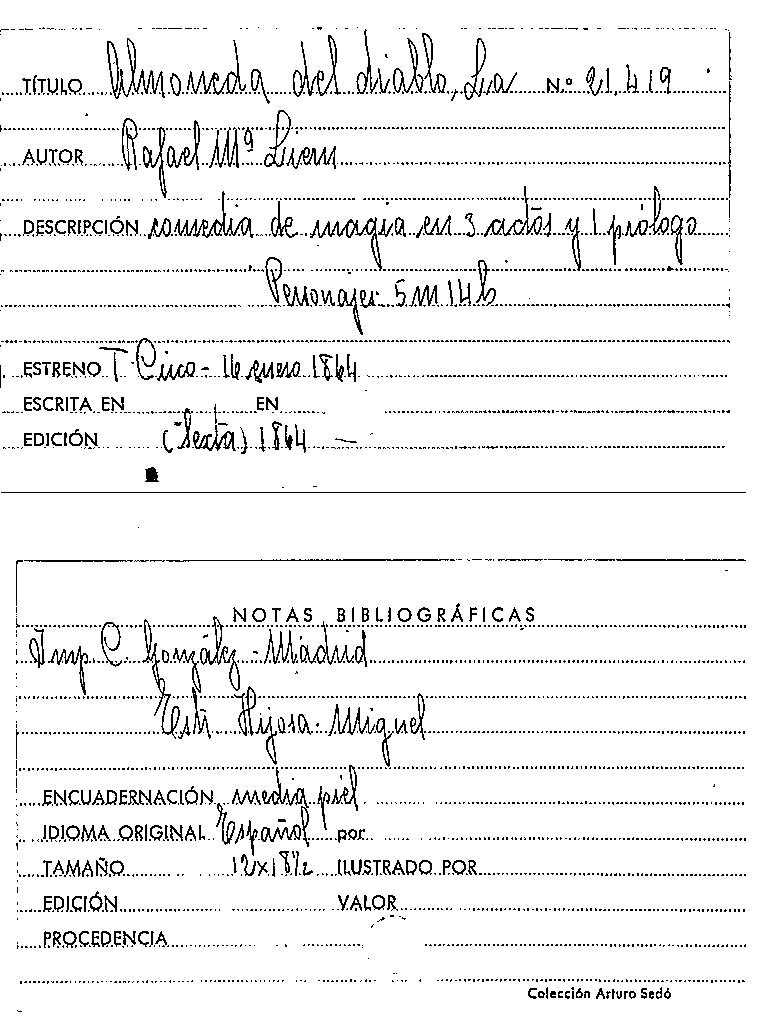 TÍTULO Almoneda del diablo, La N.º 21.419
AUTOR Rafael Mª Liern
DESCRIPCIÓN comedia de magia en 3 actos y 1 prólogo
Personajes 5 m 14 h
ESTRENO T. Circo - 16 enero 1864
ESCRITA EN EN
EDICIÓN (Sexta) 1864 —
NOTAS BIBLIOGRÁFICAS
Imp. C. González - Madrid
Hijosa - Miguel
ENCUADERNACIÓN media piel
IDIOMA ORIGINAL Español por
TAMAÑO 12x18½ ILUSTRADO POR
EDICIÓN VALOR
PROCEDENCIA
Colección Arturo Sedó